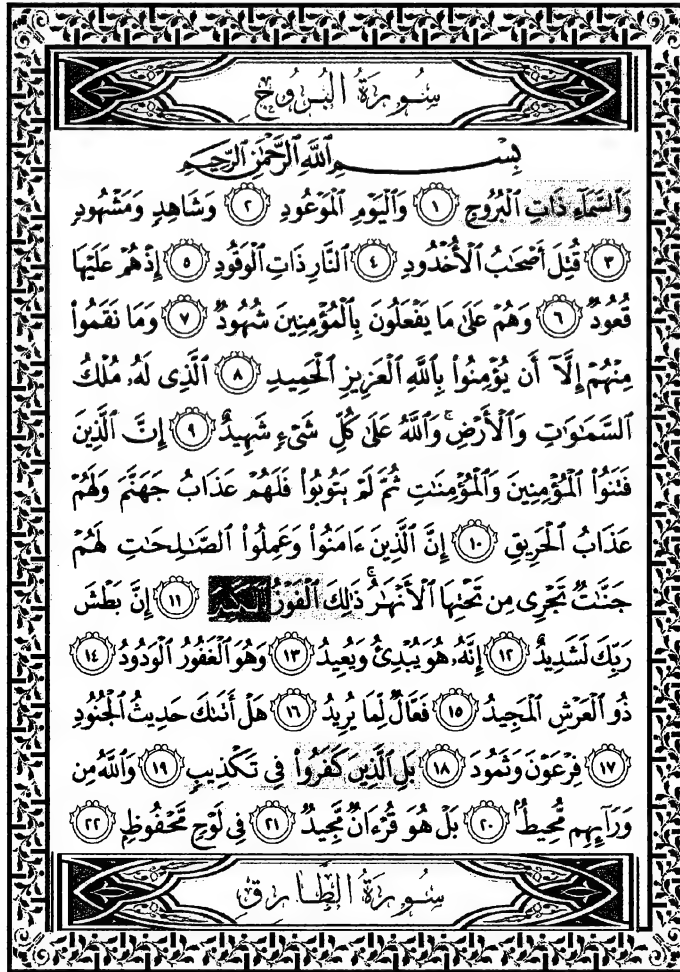 سُورَةُ البُرُوجِ
بِسْمِ اللَّهِ الرَّحْمَٰنِ الرَّحِيمِ
وَالسَّمَاءِ ذَاتِ الْبُرُوجِ ١ وَالْيَوْمِ الْمَوْعُودِ ٢ وَشَاهِدٍ وَمَشْهُودٍ
٣ قُتِلَ أَصْحَابُ الْأُخْدُودِ ٤ النَّارِ ذَاتِ الْوَقُودِ ٥ إِذْ هُمْ عَلَيْهَا
قُعُودٌ ٦ وَهُمْ عَلَىٰ مَا يَفْعَلُونَ بِالْمُؤْمِنِينَ شُهُودٌ ٧ وَمَا نَقَمُوا
مِنْهُمْ إِلَّا أَن يُؤْمِنُوا بِاللَّهِ الْعَزِيزِ الْحَمِيدِ ٨ الَّذِي لَهُ مُلْكُ
السَّمَاوَاتِ وَالْأَرْضِ ۚ وَاللَّهُ عَلَىٰ كُلِّ شَيْءٍ شَهِيدٌ ٩ إِنَّ الَّذِينَ
فَتَنُوا الْمُؤْمِنِينَ وَالْمُؤْمِنَاتِ ثُمَّ لَمْ يَتُوبُوا فَلَهُمْ عَذَابُ جَهَنَّمَ وَلَهُمْ
عَذَابُ الْحَرِيقِ ١٠ إِنَّ الَّذِينَ ءَامَنُوا وَعَمِلُوا الصَّالِحَاتِ لَهُمْ
جَنَّاتٌ تَجْرِي مِن تَحْتِهَا الْأَنْهَارُ ۚ ذَٰلِكَ الْفَوْزُ الْكَبِيرُ ١١ إِنَّ بَطْشَ
رَبِّكَ لَشَدِيدٌ ١٢ إِنَّهُ هُوَ يُبْدِئُ وَيُعِيدُ ١٣ وَهُوَ الْغَفُورُ الْوَدُودُ ١٤
ذُو الْعَرْشِ الْمَجِيدُ ١٥ فَعَّالٌ لِّمَا يُرِيدُ ١٦ هَلْ أَتَىٰكَ حَدِيثُ الْجُنُودِ
١٧ فِرْعَوْنَ وَثَمُودَ ١٨ بَلِ الَّذِينَ كَفَرُوا فِي تَكْذِيبٍ ١٩ وَاللَّهُ مِن
وَرَائِهِم مُّحِيطٌ ٢٠ بَلْ هُوَ قُرْءَانٌ مَّجِيدٌ ٢١ فِي لَوْحٍ مَّحْفُوظٍ ٢٢
سُورَةُ الطَّارِقِ